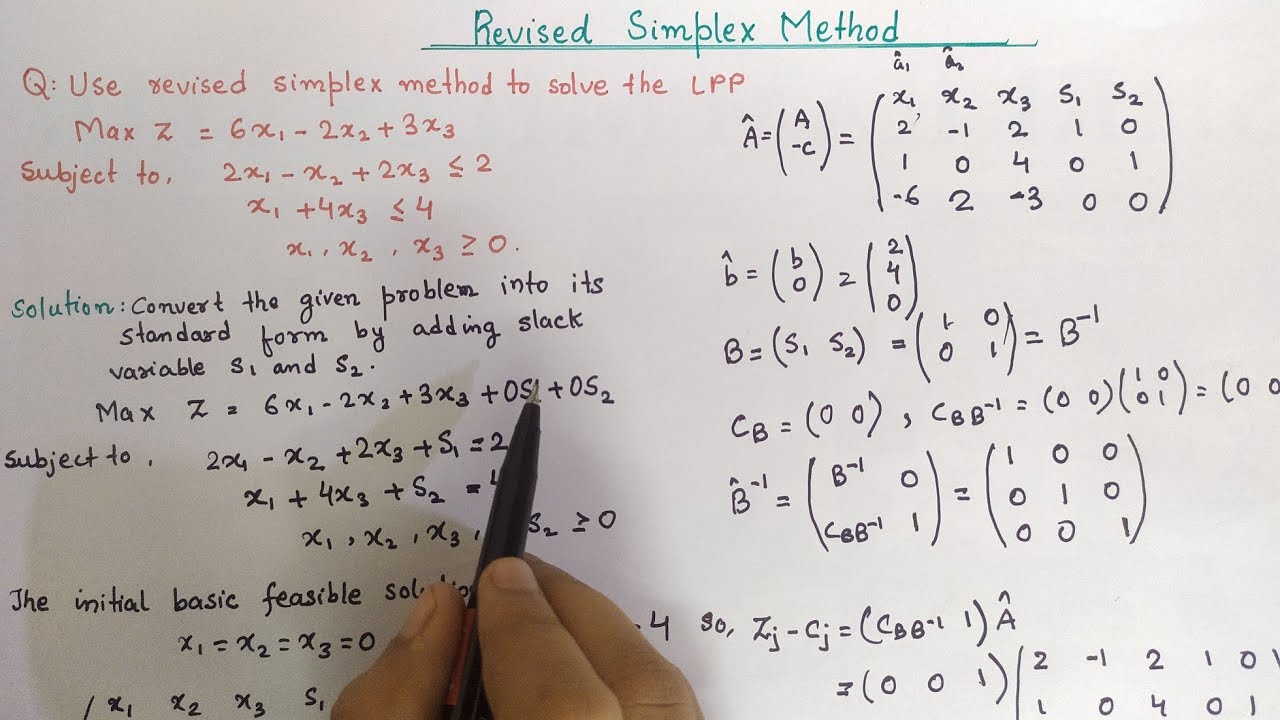 Revised Simplex Method
Q: Use revised simplex method to solve the LPP
Max Z = 6x₁ - 2x₂ + 3x₃
Subject to, 2x₁ - x₂ + 2x₃ ≤ 2
x₁ + 4x₃ ≤ 4
x₁, x₂, x₃ ≥ 0.
Solution: Convert the given problem into its
standard form by adding slack
variable S₁ and S₂.
Max Z = 6x₁ - 2x₂ + 3x₃ + 0S₁ + 0S₂
Subject to, 2x₁ - x₂ + 2x₃ + S₁ = 2
x₁ + 4x₃ + S₂ =
x₁, x₂, x₃, S₂ ≥ 0
The initial basic feasible
x₁ = x₂ = x₃ = 0 4
( x₁ x₂ x₃ S₁
â₁ â₂
x₁ x₂ x₃ S₁ S₂
2 -1 2 1 0
Â = (A -C) = 1 0 4 0 1
-6 2 -3 0 0
b̂ = (b 0) = (2 4 0)
B = (S₁ S₂) = (1 0 0 1) = B⁻¹
C_B = (0 0), C_B B⁻¹ = (0 0)(1 0 0 1) = (0 0
B̂⁻¹ = (B⁻¹ 0 C_B B⁻¹ 1) = (1 0 0 0 1 0 0 0 1)
So, Zⱼ - Cⱼ = (C_B B⁻¹ 1) Â
= (0 0 1) ( 2 -1 2 1 0
1 0 4 0 1